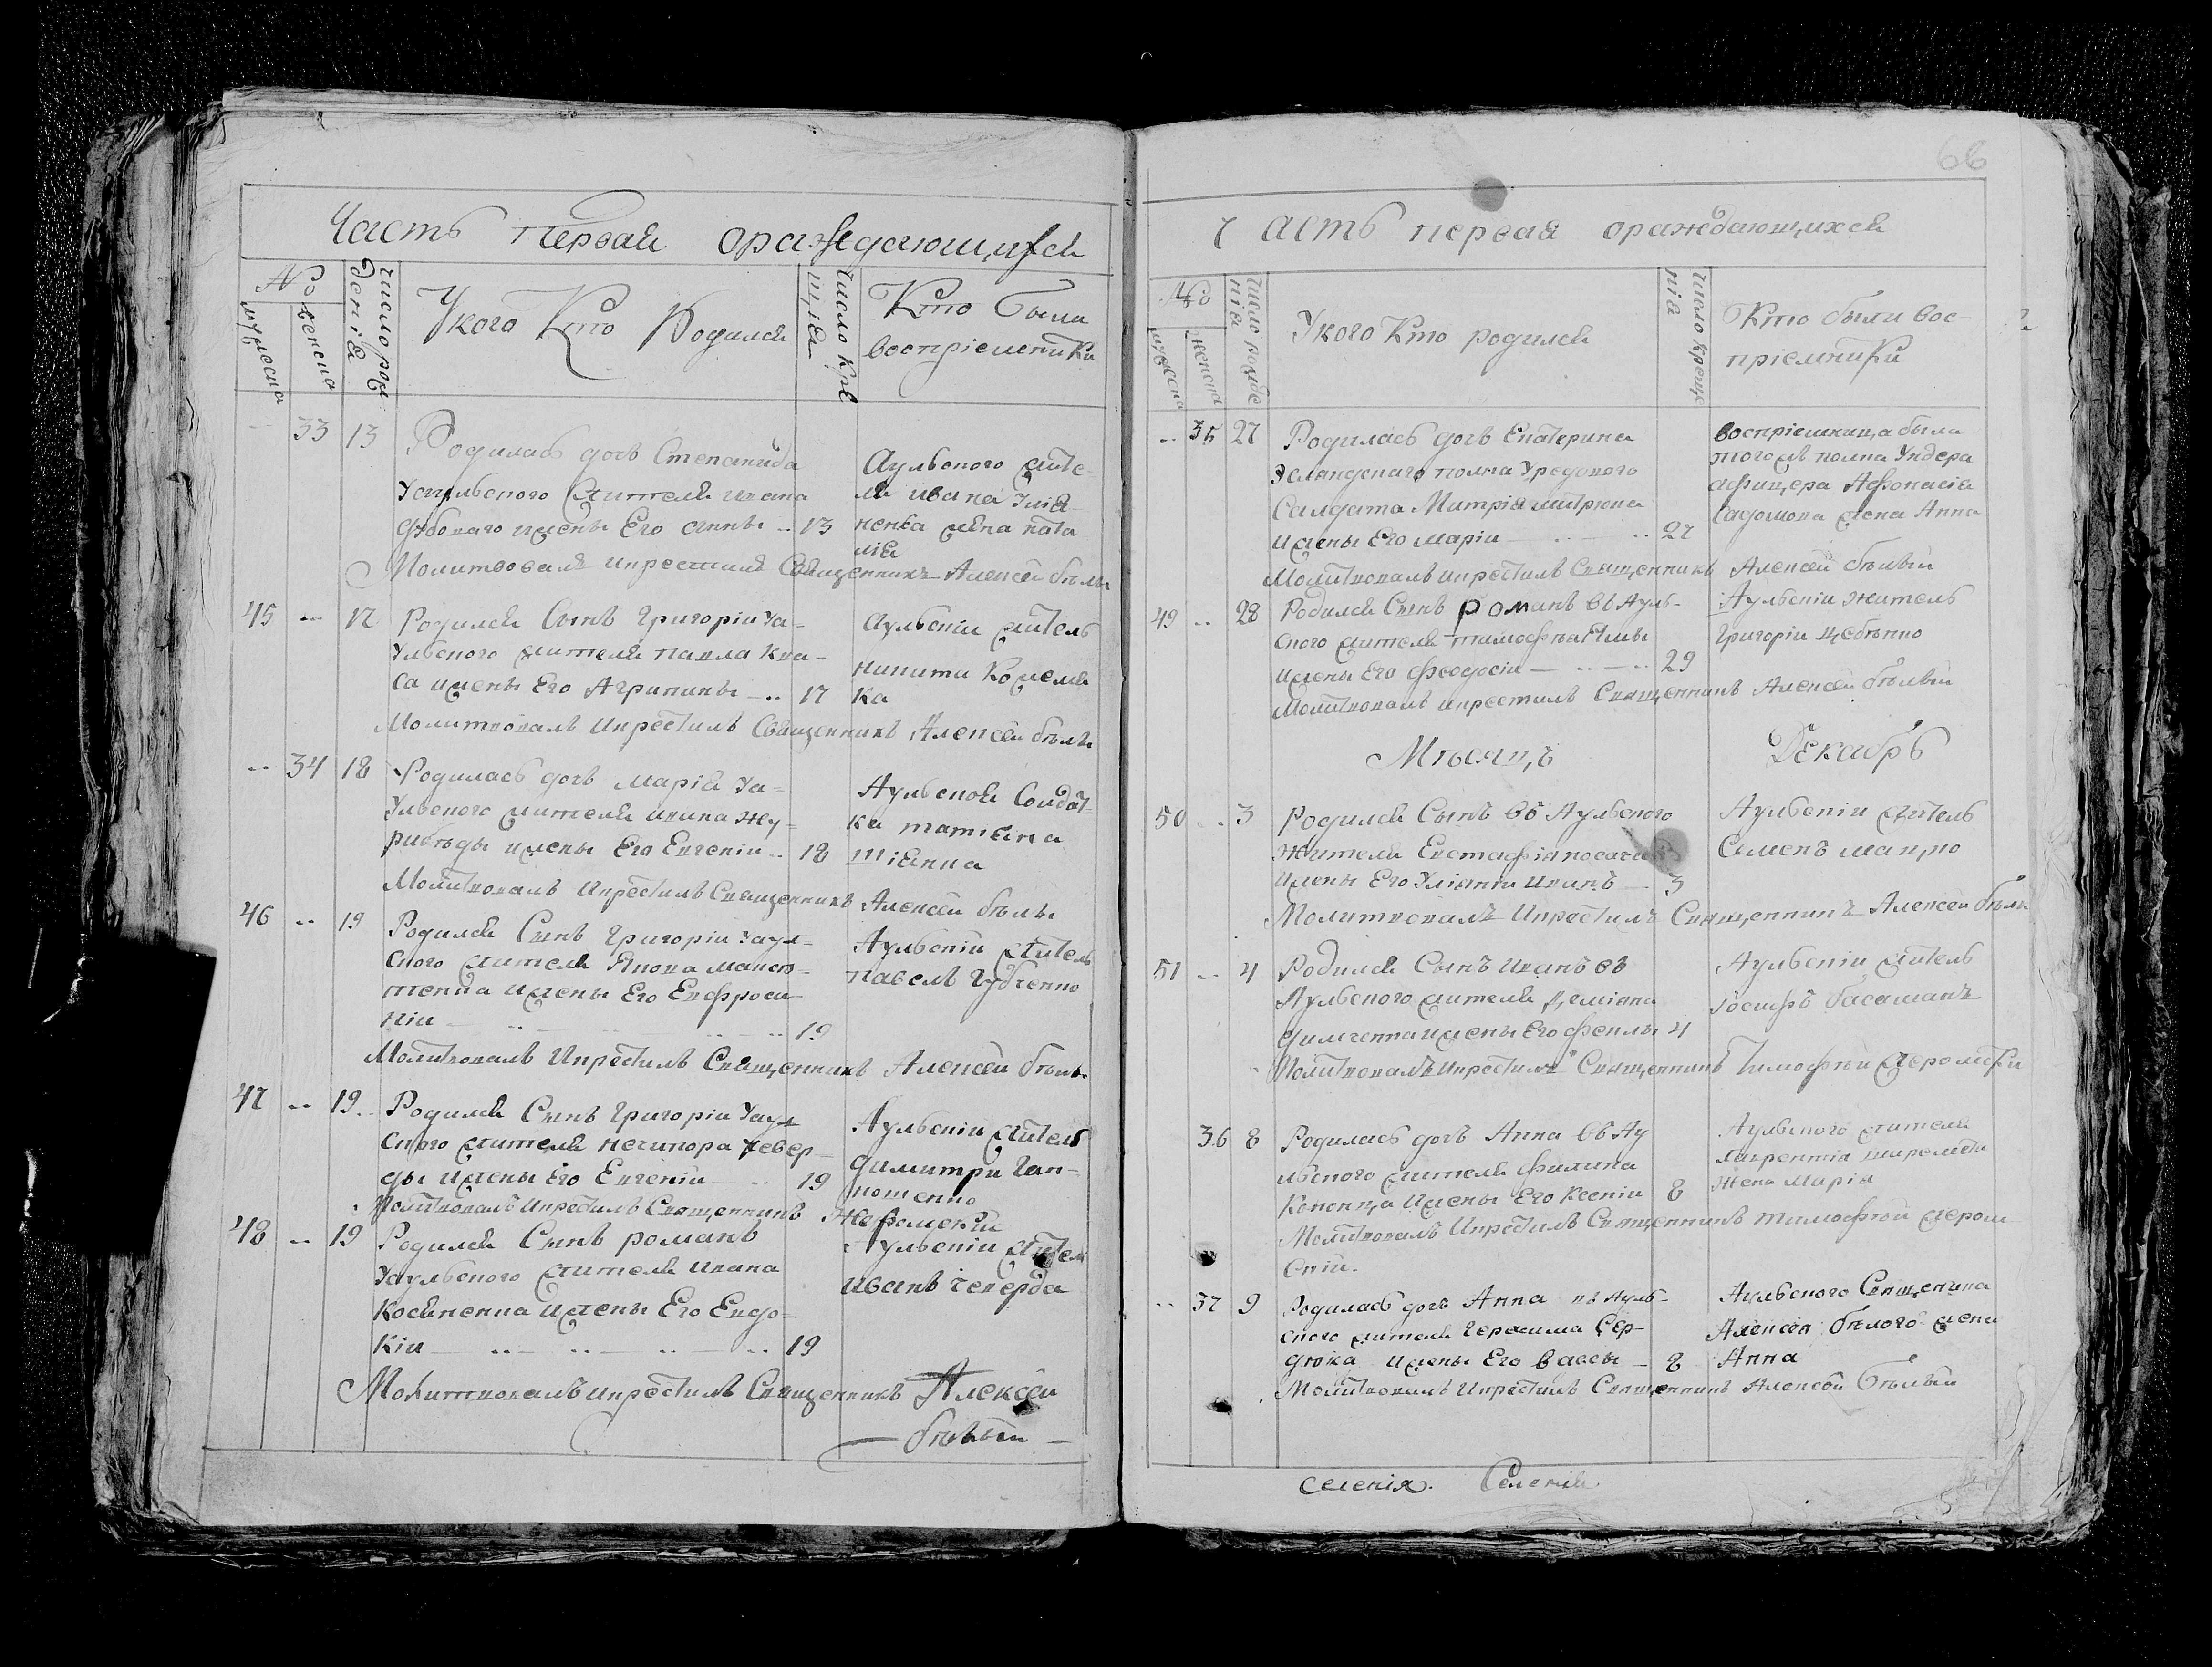 Часть первая оражедающихся
№
мужеска
женска
число рож
денія
У кого Кто Родился
число кре
щенія
Кто были
воспріемники
33 13 Родилась дочь Степанида
У аульского жителя Ивана
жены Его Анны 13
Аульского жите-
ля Ивана
ненка жена ната
лія
Молитвовалъ и крестилъ Священникъ Алексей белы
45 17 Родился Сынъ Григорій У а-
ульского жителя павла Ква-
са и жены Его Агрипины 17
Аульскій житель
никита Кожемя
ка
Молитвовалъ и крестилъ Священникъ Алексей белы
34 18 Родилась дочь марія У а-
ульского жителя ивана жу-
рибѣды и жены Его Евгеніи 18
Аульской Солдат-
ка татіяна
Молитвовалъ и крестилъ Священникъ Алексей белы
46 19 Родился Сынъ Григорій У аул-
ского жителя Якова максю-
тенка и жены Его Евфроси-
ніи 19
Аульскій житель
павелъ Губченко
Молитвовалъ и крестилъ Священникъ Алексей белы
47 19 Родился Сынъ Григорій У аул
ского жителя нечипора Чевер-
ды и жены Его Евгеніи 19
Аульскій житель
димитри Ган-
ношенко
Молитвовалъ и крестилъ Священникъ Жеромскій
48 19 Родился Сынъ романъ
У аульского жителя ивана
Косяненка и жены Его Евдо-
кіи 19
Аульскій жител
иванъ Чеверда
Молитвовалъ и крестилъ Священникъ Алексей
белый
66
Часть первая оражедающихся
№
мужеска
женска
число рожде
нія
У кого Кто родился
число креще
нія
Кто были вос-
пріемники
35 27 Родилась дочь Екатерина
полка Урядового
Салдата Митрія митрюка
и жены Его маріи 27
воспріемница была
тогожъ полка Ундера
афицера Афонасія
Садомова жена Анна
Молитвовалъ и крестилъ Священникъ Алексей белый
49 28 Родился Сынъ романъ въ Ауль-
ского жителя тимофѣя
жены Его феодосіи 29
Аульскій житель
Григорій Цебѣнко
Молитвовалъ и крестилъ Священникъ Алексей белый
Мѣсяцъ Декабрь
50 3 Родился Сынъ въ Аульского
жителя Евстафія
и жены Его Уліяніи Иванъ 3
Аульскій житель
Семенъ мацко
Молитвовалъ и крестилъ Священникъ Алексей белы
51 4 Родился Сынъ Иванъ въ
Аульского жителя Деміяна
димченка и жены Его феклы 4
Аульскій житель
Іосифъ Басаманъ
Молитвовалъ и крестилъ Священникъ Тимофѣй Жеромски
36 8 Родилась дочь Анна въ Ау
льского жителя филипа
Коненца и жены Его Ксеніи 8
Аульского жителя
Лаврентія
жена марія
Молитвовалъ и крестилъ Священникъ тимофѣй жером
скій.
37 9 Родилась дочь Анна въ Ауль-
ского жителя Герасима Сер-
дюка и жены Его вассы 8
Аульского Священика
Алексея белого жена
Анна
Молитвовалъ и крестилъ Священникъ Алексей белый
селенія. Селенія